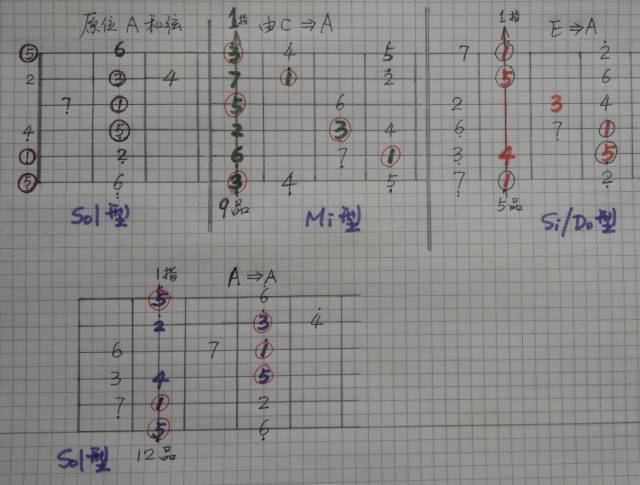 原位 A 和弦 1指 由C⇒A 1指 E⇒A
⑤ 6 3 4 5 7 1 2
2 3 4 7 1 2 5 6
7 1 5 6 2 3 4
4 5 2 3 4 6 7 1
1 2 6 7 1 3 4 5
5 6 3 4 5 7 1 2
Sol型 9品 Mi型 5品 Si/Do型
1指 A⇒A
5 6
2 3 4
6 7 1
3 4 5
7 1 2
5 6
Sol型 12品